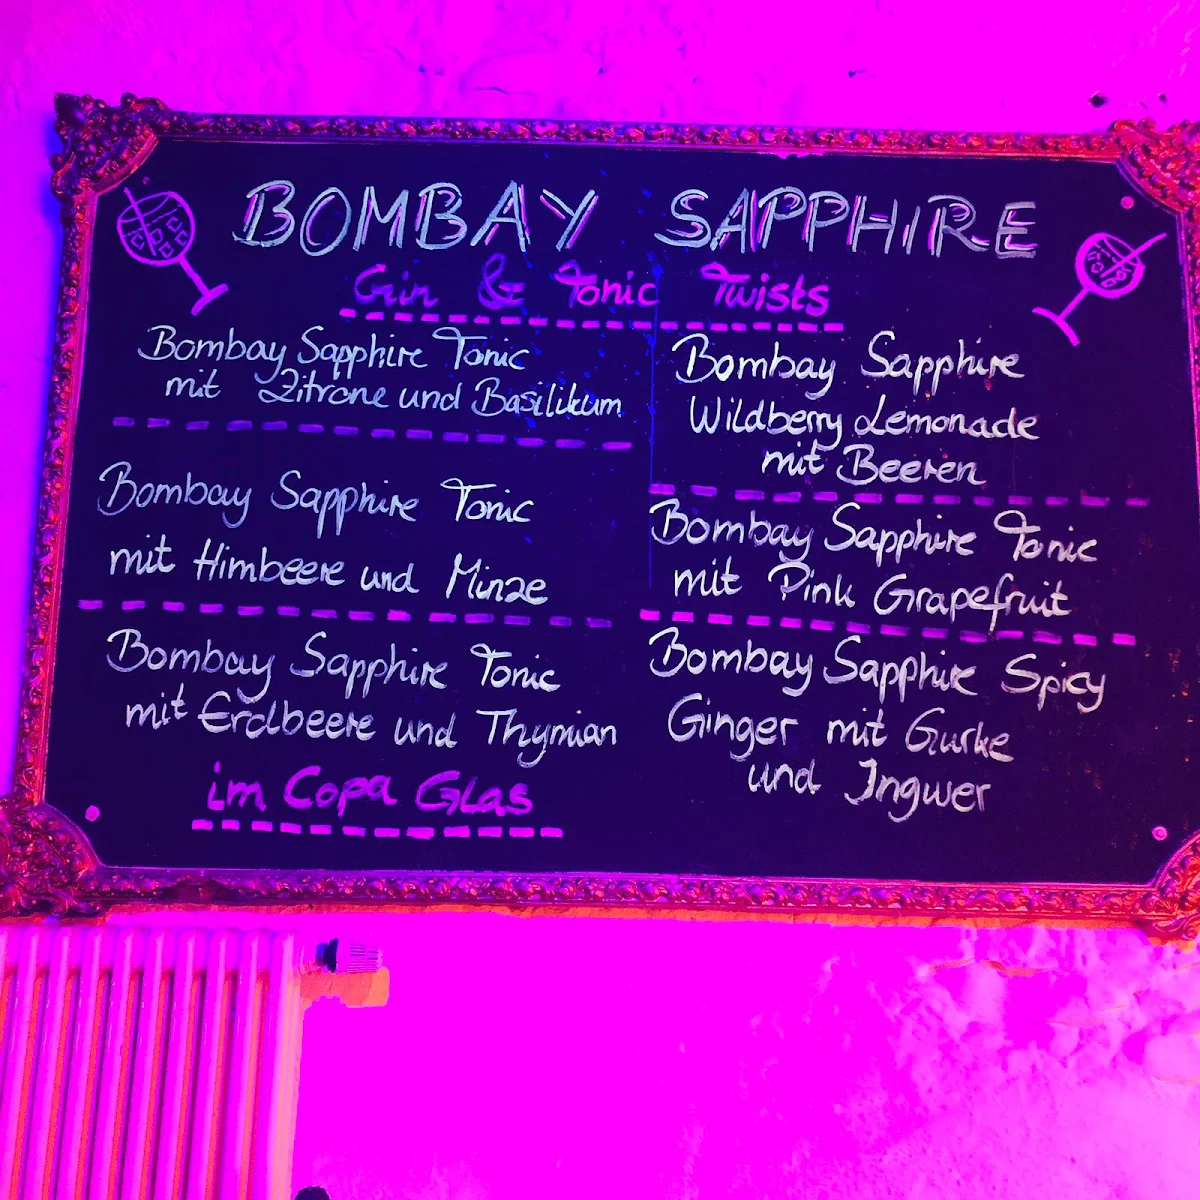 BOMBAY SAPPHIRE
Gin & Tonic Twists
Bombay Sapphire Tonic
mit Zitrone und Basilikum
Bombay Sapphire Tonic
mit Himbeere und Minze
Bombay Sapphire Tonic
mit Erdbeere und Thymian
im Copa Glas
Bombay Sapphire
Wildberry Lemonade
mit Beeren
Bombay Sapphire Tonic
mit Pink Grapefruit
Bombay Sapphire Spicy
Ginger mit Gurke
und Ingwer